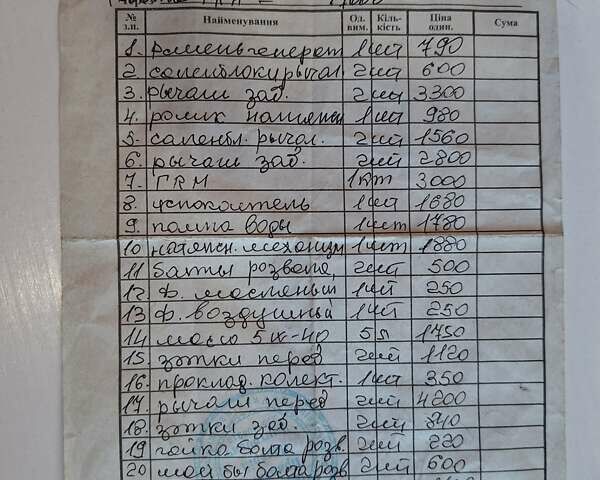 № з.п. Найменування Од. вим. Кіль-кість Ціна один. Сума
1. Ремень генерат 1шт 790
2 саленблоки рычаг. 2шт 600
3. рычаги зад. 2шт 3300
4. ролик натяжн 1шт 980
5. саленбл. рычаг. 2шт 1560
6. рычаги зад. 2шт 2800
7. ГRM 1кт 3000
8. успокоитель 1шт 1680
9. помпа воды 1шт 1780
10 натяжн. механизм 1шт 1880
11 Балты розвала 2шт 500
12 Ф. масленый 1шт 250
13 Ф. воздушный 1шт 250
14 масло 5W-40 5л 1750
15. зтяки перед 2шт 1120
16. проклад. колект. 1шт 350
17. рычаги перед 2шт 4200
18. зтяки зад. 2шт 840
19 гайка болта розв. 2шт 220
20 болта розв 2шт 600